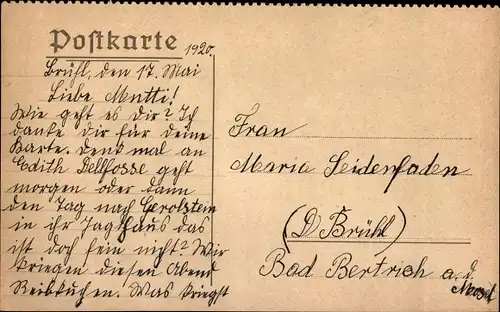 Postkarte
1920.
Brühl, den 17. Mai
Liebe Mutti!
Wie geht es dir? Ich
danke dir für deine
Karte. Denk mal an
Edith Dellfosse geht
morgen oder dann
den Tag nach Gerolstein
in ihr Jagthaus das
ist doch fein nicht? Wir
kriegen diesen Abend
Reibkuchen. Was kriegst
Frau
Maria Seidenfaden
(D Brühl)
Bad Bertrich a. d.
Mosel